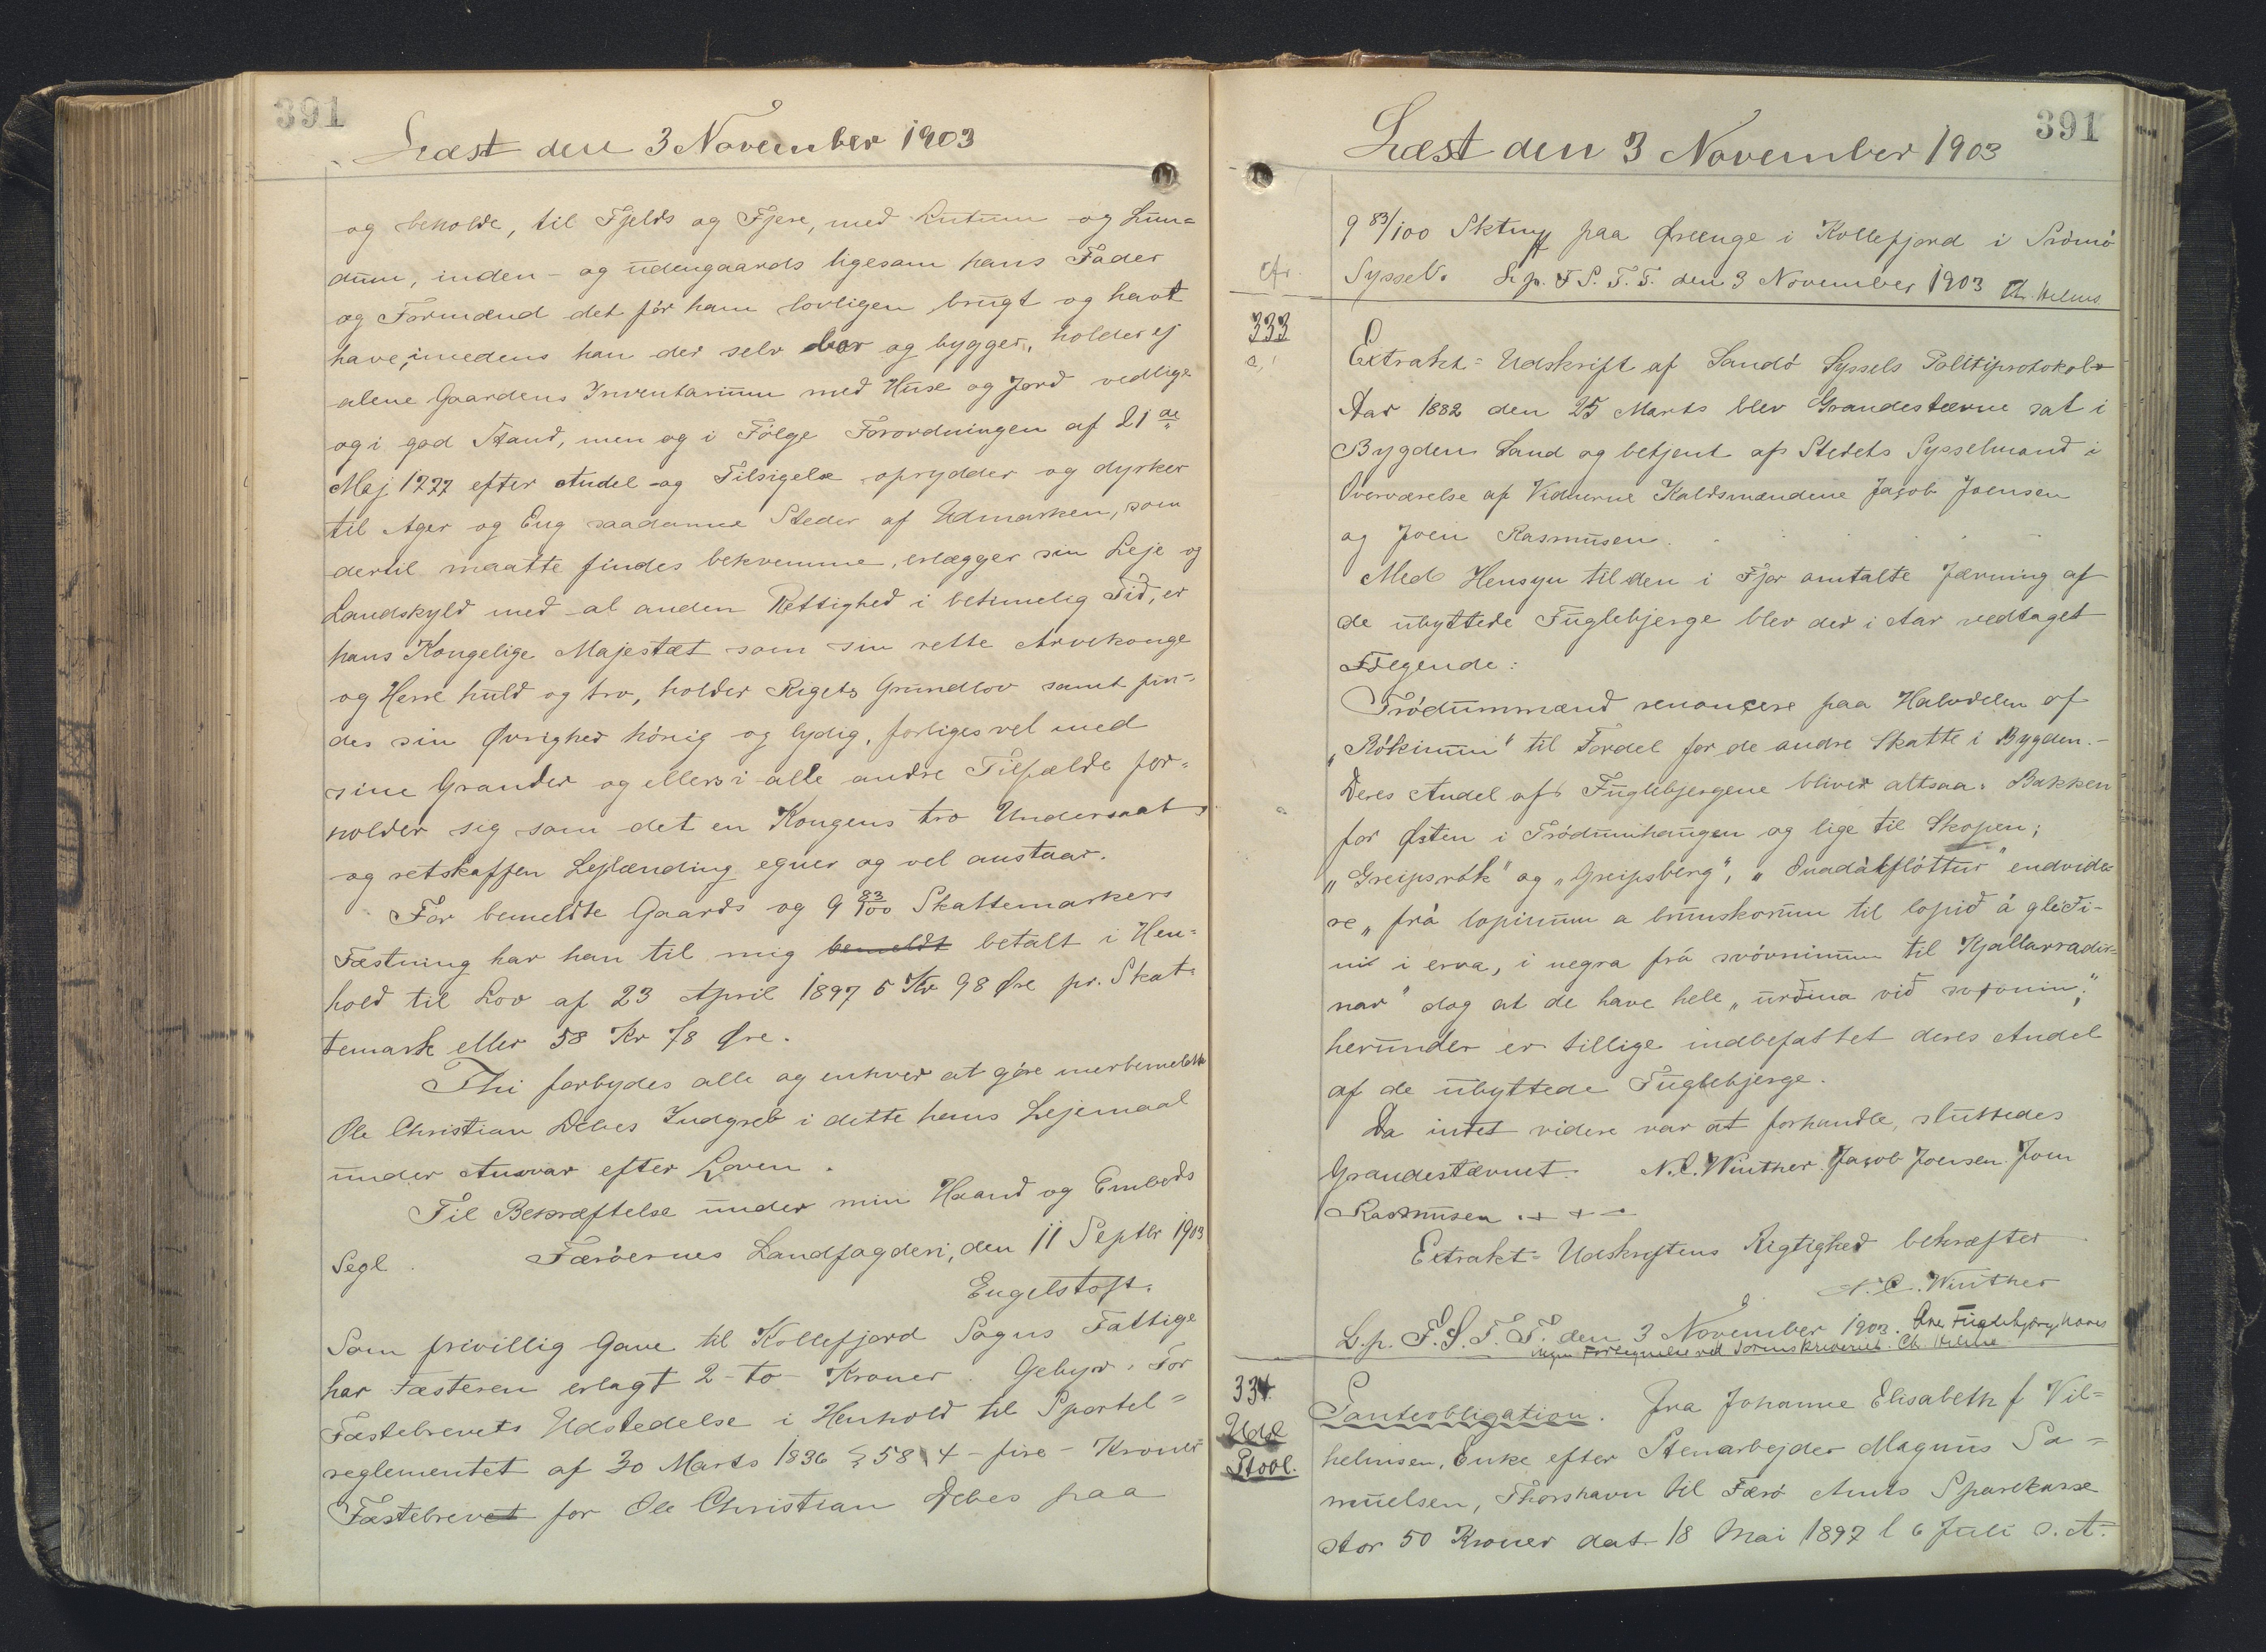 391
Læst den 3 November 1903
og beholde, til Fjelds og Fjere, med Lutum og Lun=
dum, inden- og udengaards ligesom hans Fader
og Formænd det før ham lovligen brugt og havt
have, imedens han der selv bor og bygger, holder ej
alene Gaardens Inventarium med Huse og Jord vedlige
og i god Stand, men og i Følge Forordningen af 21de
Maj 1777 efter Andel og Tilsigelse oprydder og dyrker
til Ager og Eng saadanne Steder af Udmarken, som
dertil maatte findes bekvemme, erlægger sin Leje og
Landskyld med al anden Rettighed i betimelig Tid, er
hans Kongelige Majestæt som sin rette Arvekonge
og Herre huld og tro, holder Rigets Grundlov samt fin=
des sin Øvrighed hörig og lydig, forliges vel med
sine Grander og ellers i alle andre Tilfælde for=
holder sig som det en Kongens tro Undersaat
og retskaffen Lejlænding egner og vel anstaar.
For bemeldte Gaards og 9 83/100 Skattemarkers
Fæstning har han til mig bemeldt betalt i Hen=
hold til Lov af 23 April 1897 5 Kr 98 Øre pr. Skat=
temark eller 58 Kr 78 Øre.
Thi forbydes alle og enhver at gøre merbemeldte
Ole Christian Debes Indgreb i dette hans Lejemaal
under Ansvar efter Loven.
Til Bekræftelse under min Haand og Embeds
Segl. Færöernes Landfogderi, den 11 Septbr 1903
Engelstoft.
Som frivillig Gave til Kollefjord Sogns Fattige
har Fæsteren erlagt 2 - to - Kroner. Gebyr: For
Fæstebrevets Udstedelse i Henhold til Sportel=
reglementet af 30 Marts 1836 § 58 4 - fire - Kroner
Fæstebrevet for Ole Christian Debes paa
391
Læst den 3 November 1903
9 83/100 Sktmrk paa Ørenge i Kollefjord i Strömö
Syssel. L.p. F.S.T.T. den 3 November 1903 Ch. Helms
cfr.
333
a,
Extrakt=Udskrift af Sandö Syssels Politiprotokol
Aar 1882 den 25 Marts blev Grandestævne sat i
Bygden Sand og betjent af Stedets Sysselmand i
Overværelse af Vidnerne Kaldsmændene Jacob Joensen
og Joen Rasmusen.
Med Hensyn til den i Fjor omtalte Jævning af
de ubyttede Fuglebjerge blev der i Aar vedtaget
Følgende:
Trödummænd renoncere paa Halvdelen af
„Rókinum" til Fordel for de andre Skatte i Bygden.-
Deres Andel af Fuglebjergene bliver altsaa: Bakken
for Østen i Trödumhaugen og lige til Skopen;
„Greipsrók" og „Greipsberg", „Ovadálflóttur" endvide
re „frá lopinum a brunskorum til lopið á gliði-
nit i erva, i negra frá svövninum til Kjallarradir
nar" dog at de have hele „urðina við svovnin;"
herunder er tillige indbefattet deres Andel
af de ubyttede Fuglebjerge.
Da intet videre var at forhandle, sluttedes
Grandestævnet. N.C. Winther. Jacob Joensen. Joen
Rasmusen
Extrakt=Udskriftens Rigtighed bekræfter
N.C. Winther
L.p. F.S.T.T. den 3 November 1903. Fuglebjerg haves
ingen Fortegnelse ved Sorenskriveriet. Ch. Helms
334.
Udl
Panteobligation. Fra Johanne Elisabeth f Vil=
helmsen, Enke efter Stenarbejder Magnus Sa=
muelsen, Thorshavn til Færö Amts Sparekasse
stor 50 Kroner dat. 18 Mai 1897 l 6 Juli s. A.